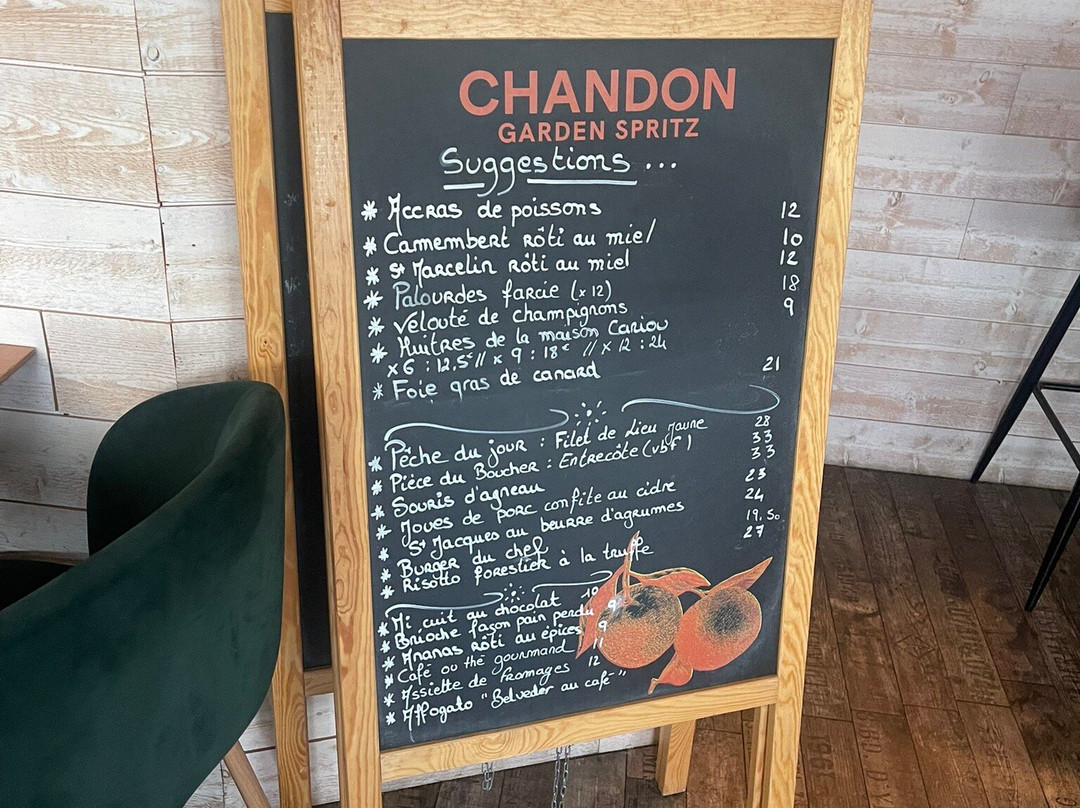 CHANDON
GARDEN SPRITZ
Suggestions ...
* Accras de poissons 12
* Camembert rôti au miel 10
* St Marcelin rôti au miel 12
* Palourdes farcie (x 12) 18
* Velouté de champignons 9
* Huitres de la maison Cariou
x 6 : 12,5€ // x 9 : 18€ // x 12 : 24
* Foie gras de canard 21
* Pêche du jour : Filet de Lieu jaune 28
* Pièce du Boucher : Entrecôte (vbf) 33
* Souris d'agneau 33
* Joues de porc confite au cidre 23
* St Jacques au beurre d'agrumes 24
* Burger du chef 19,50
* Risotto forestier à la truffe 27
* Mi cuit au chocolat 10
* Brioche façon pain perdu 9
* Ananas rôti au épices 9
* Café ou thé gourmand 11
* Assiette de fromages 12
* Affogato "Belveder au café"